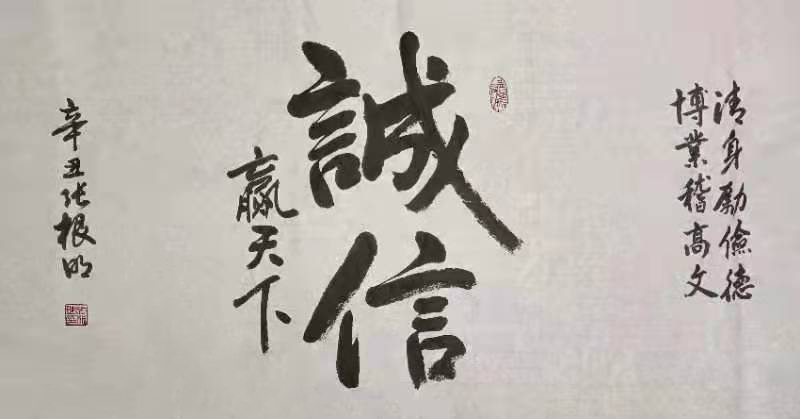 清身勵儉德
博業稽高文
誠信
贏天下
辛丑张根明